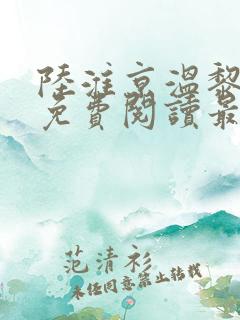 陸淮京溫黎
免費閱讀最
范清衫
未经同意禁止转载